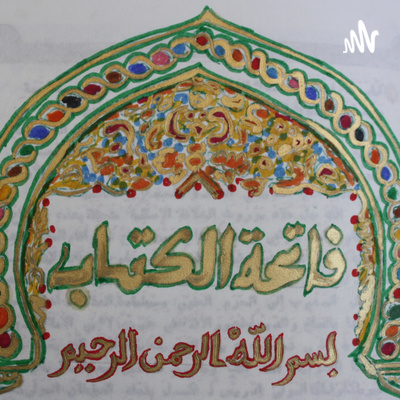 فاتحة الكتاب
بسم الله الرحمن الرحيم